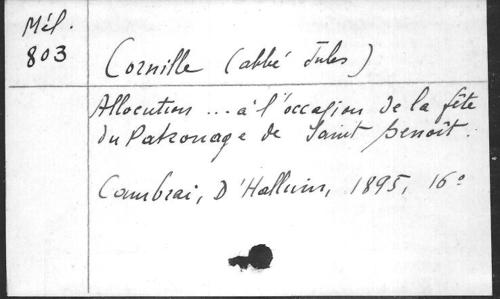 Mél.
803
Cornille (abbé Jules)
Allocution ... à l'occasion de la fête
du Patronage de Saint Benoît.
Cambrai, D'Halluin, 1895, 16°